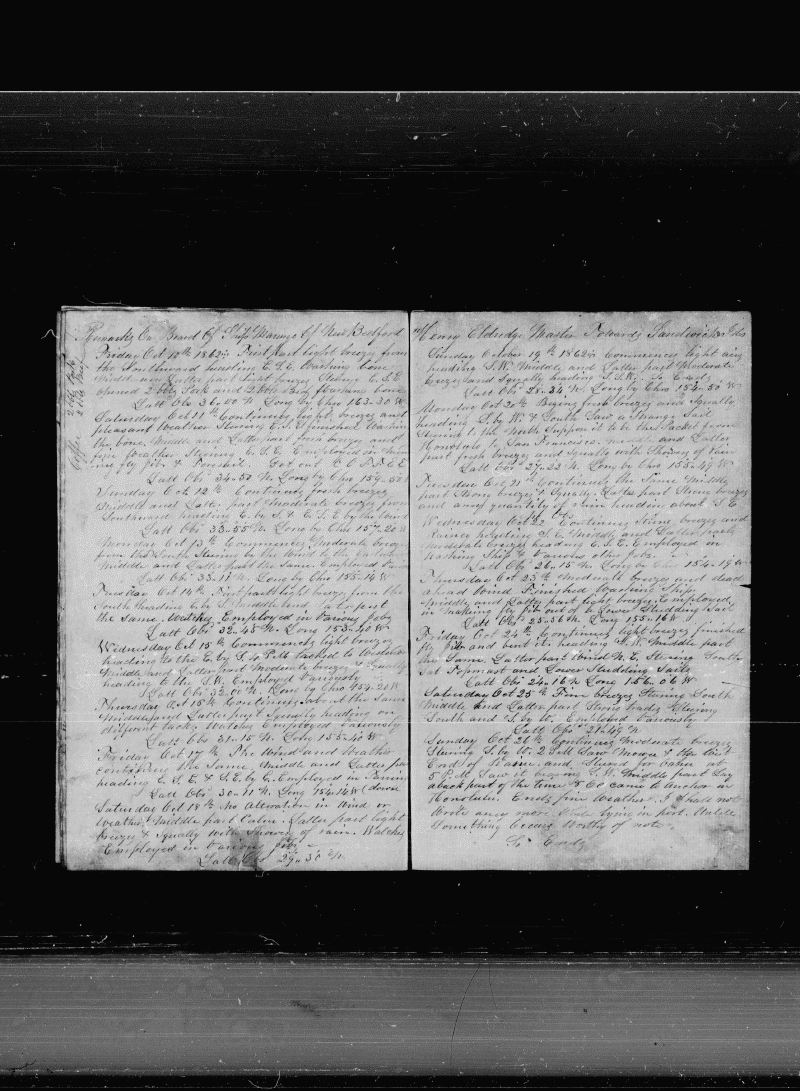 Remarks On Board Of Ship Marengo Of New Bedford
Friday Oct 10th 1862 First part light breeze from
the Southward heading E.S.E. Washing bone
Middle and Latter part Light breeze Stering E.S.E
opened 2 bbls Pork and 2 bbls Beef Washing bone
Latt Obs 36-00 N. Long by Chro 163-30 W
Saturday Oct 11th Continues light breezes and
pleasant weather Stering E.S.E finished Washing
the bone. Middle and Latter part fresh breezes and
fine Weather Stering E.S.E. Employed in
fly jib & Foresail. Got out
Latt Obs 34-50 N. Long by Chro 159-50 W
Sunday Oct 12th Continues fresh breezes
Middle and Latter part Moderate breezes from
Southward heading E. by S. & E.S.E by the Wind
Latt Obs 33-55 N. Long by Chro 157-20 W
Monday Oct 13th Commences Moderate breezes
from the South Stering by the Wind to the
Middle and Latter part the Same. Employed
Latt Obs 33-11 N. Long by Chro 155-14 W
Tuesday Oct 14th First part light breezes from the
South heading E. by S. Middle and Latter part
the Same. Watches Employed in Various jobs
Latt Obs 32-45 N. Long 153-40 W
Wednesday Oct 15th Commences light breezes
heading to the E. by S. 6 P.M tacked to Westward
Middle and Latter part Moderate breezes & Squally
heading to the S.W. Employed Variously
Latt Obs 32-00 N. Long by Chro 154-20 W
Thursday Oct 16th Continues about the Same
Middle and Latter part Squally heading on
different tacks. Watches Employed Variously
Latt Obs 31-15 N. Long 153-40 W
Friday Oct 17th The Wind and Weather
continues the Same. Middle and Latter part
heading E.S.E & S.E. by E. Employed in
Latt Obs 30-11 N. Long 154-14 W (down
Saturday Oct 18th No Alteration in Wind or
Weather. Middle part Calm. Latter part light
breezes & Squally with Showers of rain. Watches
Employed in Various jobs
Latt Obs 29-50 N.
Coffee
2 bbls Pork
2 bbls Beef
Henry Eldredge Master Towards Sandwich Isles
Sunday October 19th 1862 Commences light airs
heading S.W. Middle and Latter part Moderate
breezes and Squally heading S.S.W. So Ends
Latt Obs 28-34 N. Long by Chro 154-50 W
Monday Oct 20th Begins fresh breezes and Squally
heading S. by W. & South Saw a Strange Sail
Stering to the North Suppose it to be the Packet from
Honolulu to San Francisco. Middle and Latter
part fresh breezes and Squally with Showers of rain
Latt Obs 27-22 N. Long by Chro 155-49 W
Tuesday Oct 21st Continues the Same Middle
part Strong breezes & Squally. Latter part Strong breezes
and any quantity of rain heading about S.E
Wednesday Oct 22nd Continues Strong breezes and
Rainey heading S.E. Middle and Latter parts
Moderate breezes heading E.S.E. Employed in
Ship & Various other jobs
Latt Obs 26-15 N. Long by Chro 154-19 W
Thursday Oct 23rd Moderate breezes and dead
ahead wind Finished Washing Ship.
Middle and Latter part light breezes. Employed
in making fly jib and of a Lower Studding Sail
Latt Obs 25-36 N. Long 155-16 W
Friday Oct 24th Continues light breezes finished
fly jib and bent it. heading S.W. Middle part
the Same. Latter part Wind N.E. Stering South
Set Topmast and Lower Studding Sails
Latt Obs 24-16 N Long 156-06 W
Saturday Oct 25th Fine breezes Stering South
Middle and Latter part Strong trades Stering
South and S. by W. Employed Variously
Latt Obs 21-49 N
Sunday Oct 26th Continues Moderate breezes
Stering S. by W. 2 P.M. Saw Mowee & the West
End of Ranai. and Steered for Oahu at
5 P.M. Saw it bearing S.W. Middle part Lay
aback part of the time & came to Anchor in
Honolulu. Ends fine Weather. I Shall not
Write any more While lying in port. Unless
Something Occurs Worthy of note
So Ends